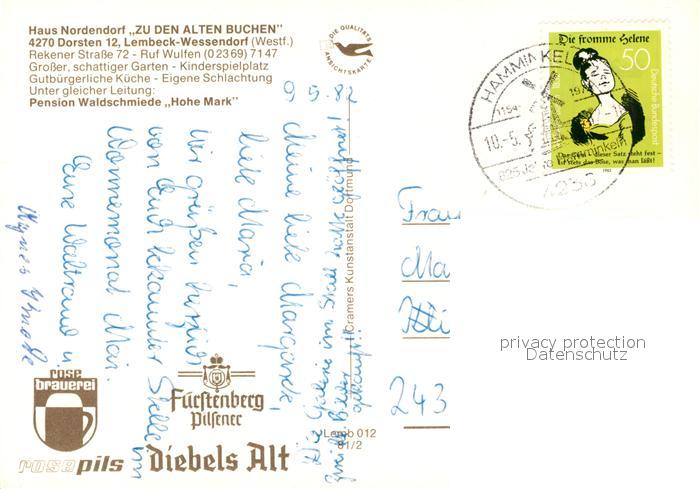 Haus Nordendorf „ZU DEN ALTEN BUCHEN"
4270 Dorsten 12, Lembeck-Wessendorf (Westf.)
Rekener Straße 72 - Ruf Wulfen (0 23 69) 71 47
Großer, schattiger Garten - Kinderspielplatz
Gutbürgerliche Küche - Eigene Schlachtung
Unter gleicher Leitung:
Pension Waldschmiede „Hohe Mark"
DIE QUALITÄTS
ANSICHTSKARTE
Die fromme Helene
50
Deutsche Bundespost
Das Gute - dieser Satz steht fest -
ist stets das Böse, was man läßt!
1982
HAMMINKELN
1154
197
10.-5.
Hamminkeln
825 Jahre
4236
9.5.82
Meine liebe Margarete,
liebe Maria,
wir grüßen herzlich
von Euch bekannter Stelle im
Wonnemonat Mai.
Eure Waltraud u.
Agnes
Cramers Kunstanstalt Dortmund
Lemb 012
81/2
Frau
Ma
243
privacy protection
Datenschutz
rose
brauerei
rosepils
Fürstenberg
Pilsener
diebels Alt